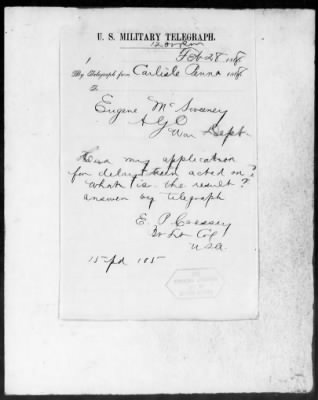 U. S. MILITARY TELEGRAPH.
Feb 28 186
By Telegraph from Carlisle Penna 186
Eugene McSweeney
A G O
War Dept
my application
for delay been acted on?
What is the result?
answer by telegraph
E. P.
USA
15 pd 105